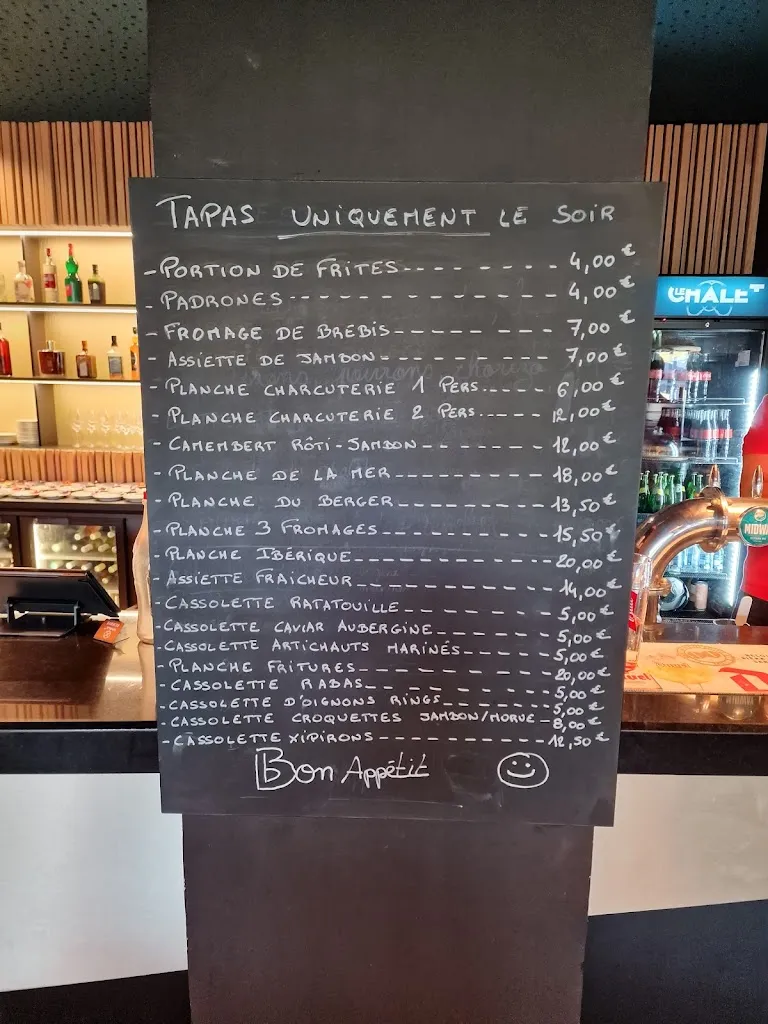 TAPAS UNIQUEMENT LE SOIR
- PORTION DE FRITES - - - - - - - - 4,00 €
- PADRONES - - - - - - - - 4,00 €
- FROMAGE DE BREBIS - - - - - - - - 7,00 €
- ASSIETTE DE JAMBON - - - - - - - - 7,00 €
- PLANCHE CHARCUTERIE 1 PERS..... - - - 6,00 €
- PLANCHE CHARCUTERIE 2 PERS..... - - - 12,00 €
- CAMEMBERT RÔTI-JAMBON - - - - - - - 12,00 €
- PLANCHE DE LA MER - - - - - - - - 18,00 €
- PLANCHE DU BERGER - - - - - - - - 13,50 €
- PLANCHE 3 FROMAGES - - - - - - - - 15,50 €
- PLANCHE IBÉRIQUE - - - - - - - - 20,00 €
- ASSIETTE FRAICHEUR - - - - - - - - 14,00 €
- CASSOLETTE RATATOUILLE - - - - - - - 5,00 €
- CASSOLETTE CAVIAR AUBERGINE - - - - - - 5,00 €
- CASSOLETTE ARTICHAUTS MARINÉS - - - - - 5,00 €
- PLANCHE FRITURES - - - - - - - - 20,00 €
- CASSOLETTE RABAS - - - - - - - - 5,00 €
- CASSOLETTE D'OIGNONS RINGS - - - - - - 5,00 €
- CASSOLETTE CROQUETTES JAMBON/MORUE - 8,00 €
- CASSOLETTE XIPIRONS - - - - - - - - 12,50 €
Bon Appétit
LE CHALET